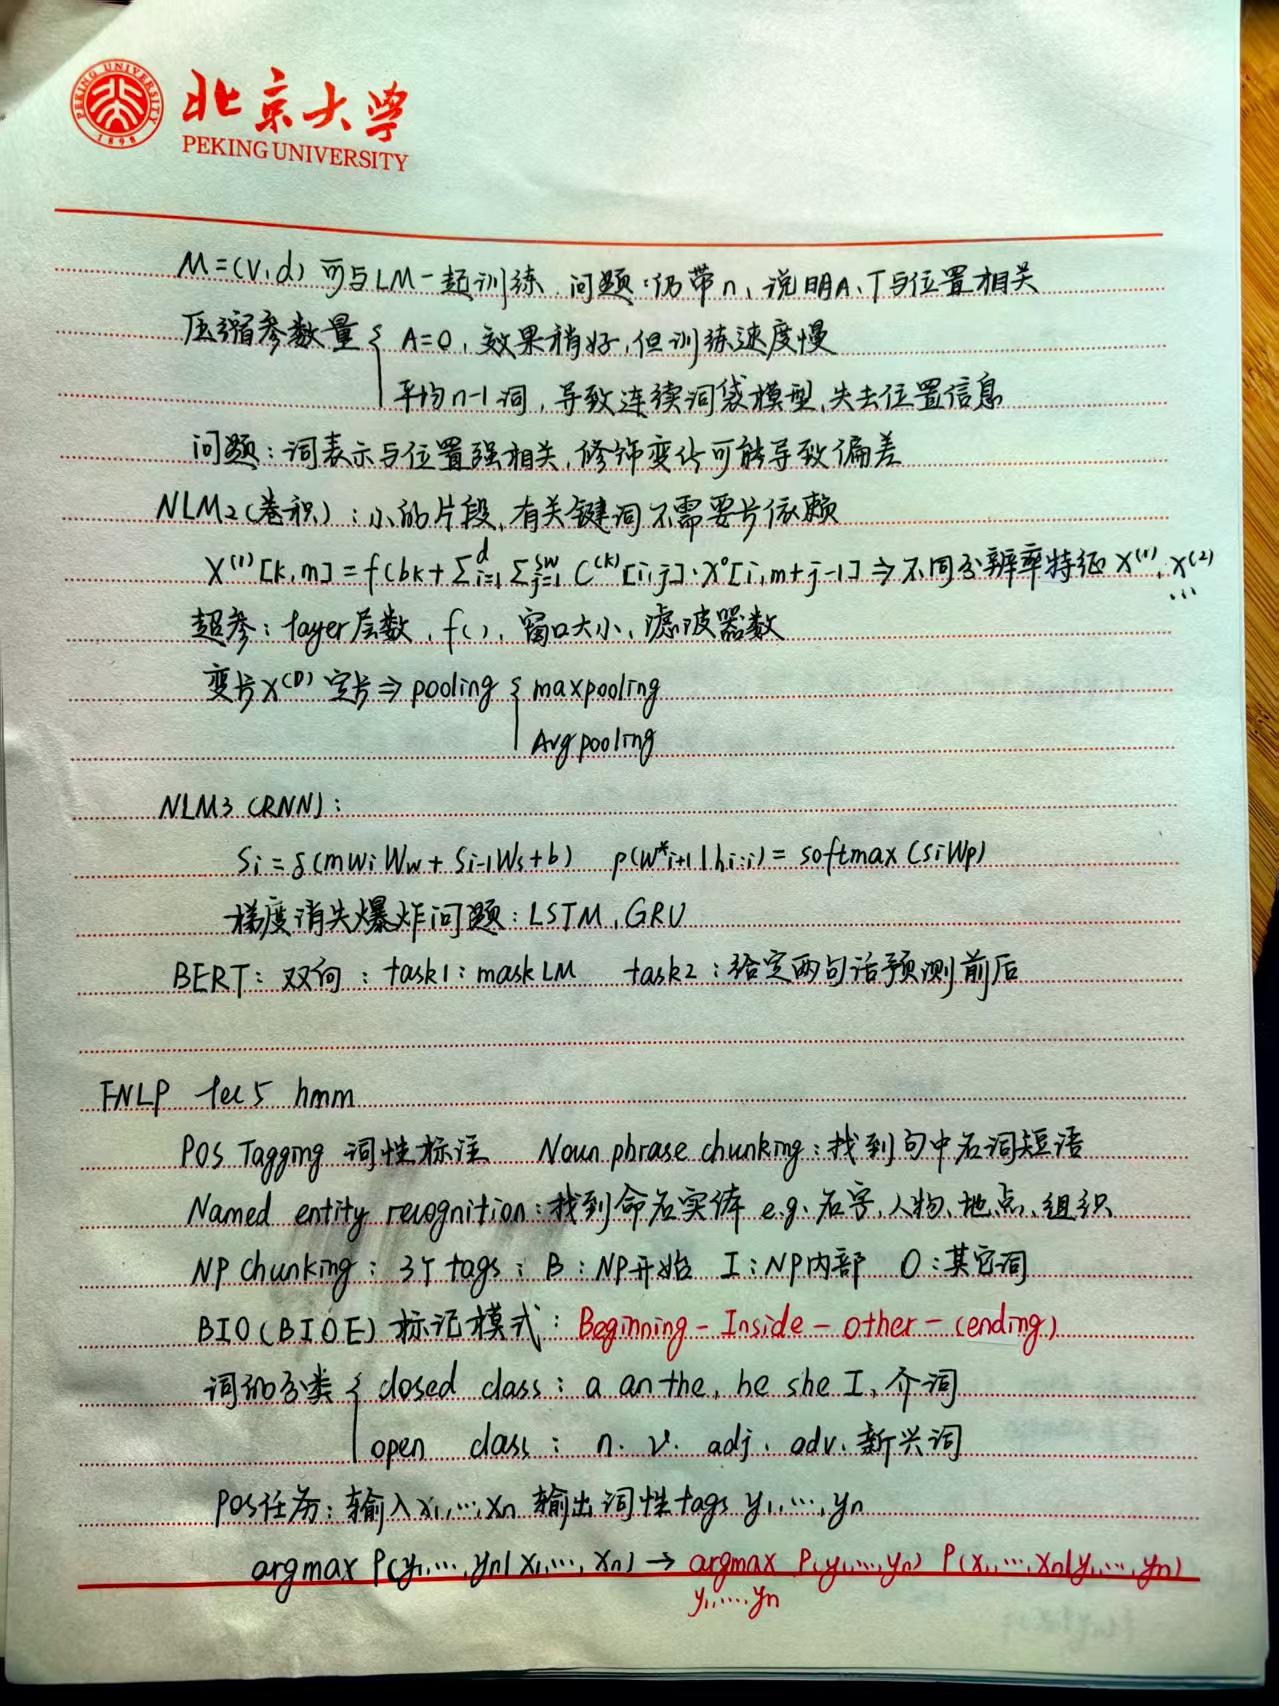 PEKING UNIVERSITY
1898
北京大学
PEKING UNIVERSITY
M=(V,d) 可与LM一起训练. 问题:仍带n, 说明A、T与位置相关
压缩参数量 { A=0, 效果稍好,但训练速度慢
平均n-1词, 导致连续词袋模型,失去位置信息
问题: 词表示与位置强相关, 修饰变化可能导致偏差
NLM2(卷积): 小的片段, 有关键词不需要长依赖
X^(1)[k,m] = f(bk + Σ_{i=1}^{d} Σ_{j=1}^{sw} C^(k)[i,j]·X^0[i,m+j-1] ⇒ 不同分辨率特征 X^(1), X^(2)
...
超参: layer层数, f(), 窗口大小, 滤波器数
变长X^(D) 定长 ⇒ pooling { maxpooling
Avgpooling
NLM3 (RNN):
Si = δ(mwiWw + Si-1Ws + b) p(w*i+1|hi:i) = softmax(siWp)
梯度消失爆炸问题: LSTM, GRU
BERT: 双向: task1: mask LM task2: 给定两句话预测前后
FNLP lec5 hmm
POS Tagging 词性标注 Noun phrase chunking: 找到句中名词短语
Named entity recognition: 找到命名实体 e.g. 名字, 人物, 地点, 组织
NP chunking: 3个tags: B: NP开始 I: NP内部 O: 其它词
BIO(BIOE) 标记模式: Beginning - Inside - other - (ending)
词的分类 { closed class: a an the, he she I, 介词
open class: n. v. adj. adv. 新兴词
POS任务: 输入x1,…,xn 输出词性tags y1,…,yn
argmax P(y1,…,yn|x1,…,xn) → argmax P(y1,…,yn) P(x1,…,xn|y1,…,yn)
y1,…,yn